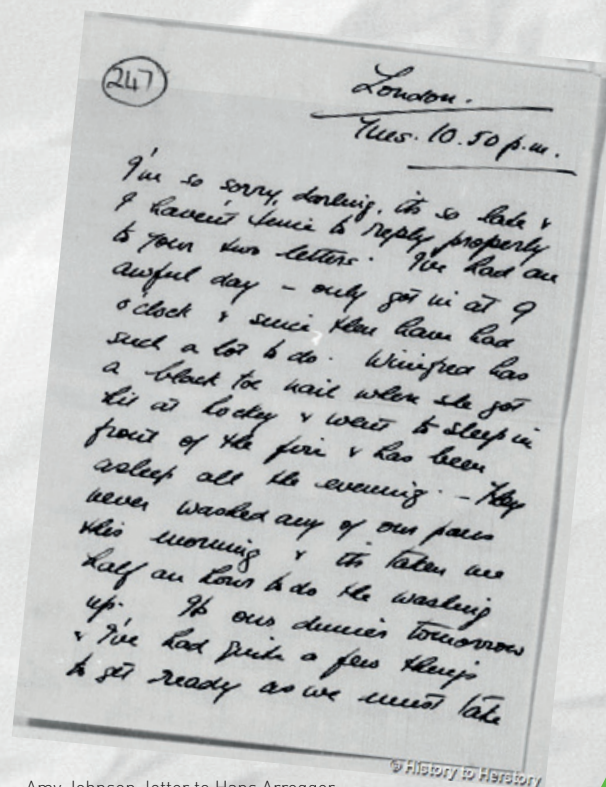 247
London.
Tues. 10.50 p.m.
I'm so sorry, darling, it's so late &
I haven't time to reply properly
to your two letters. I've had an
awful day – only got in at 9
o'clock & since then have had
such a lot to do. Winifred has
a black toe nail where she got
hit at hockey & went to sleep in
front of the fire & has been
asleep all the evening. – They
never washed any of our pans
this morning & it's taken me
half an hour to do the washing
up. It's our dinner tomorrow
& I've had quite a few things
to get ready as we must take
© History to Herstory
Amy Johnson, letter to Hans Arregger